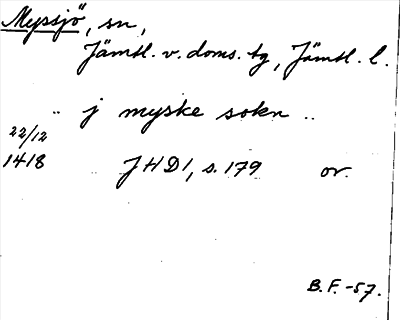 Myssjö, sn,
Jämtl. v. doms. tg, Jämtl. l.
.. j myske sokn ..
22/12
1418 JHD 1, s. 179 or.
B.F.-57.